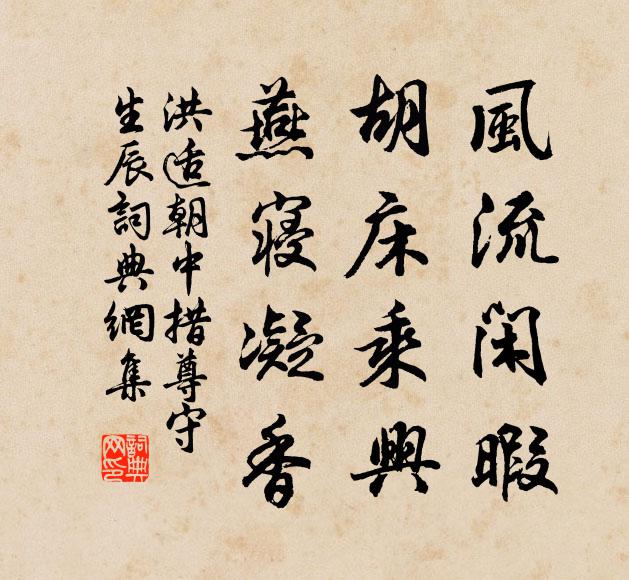 風流閑暇
胡床乘興
燕寢凝香
洪适朝中措尊守
生辰詞典網集
詞典
网印